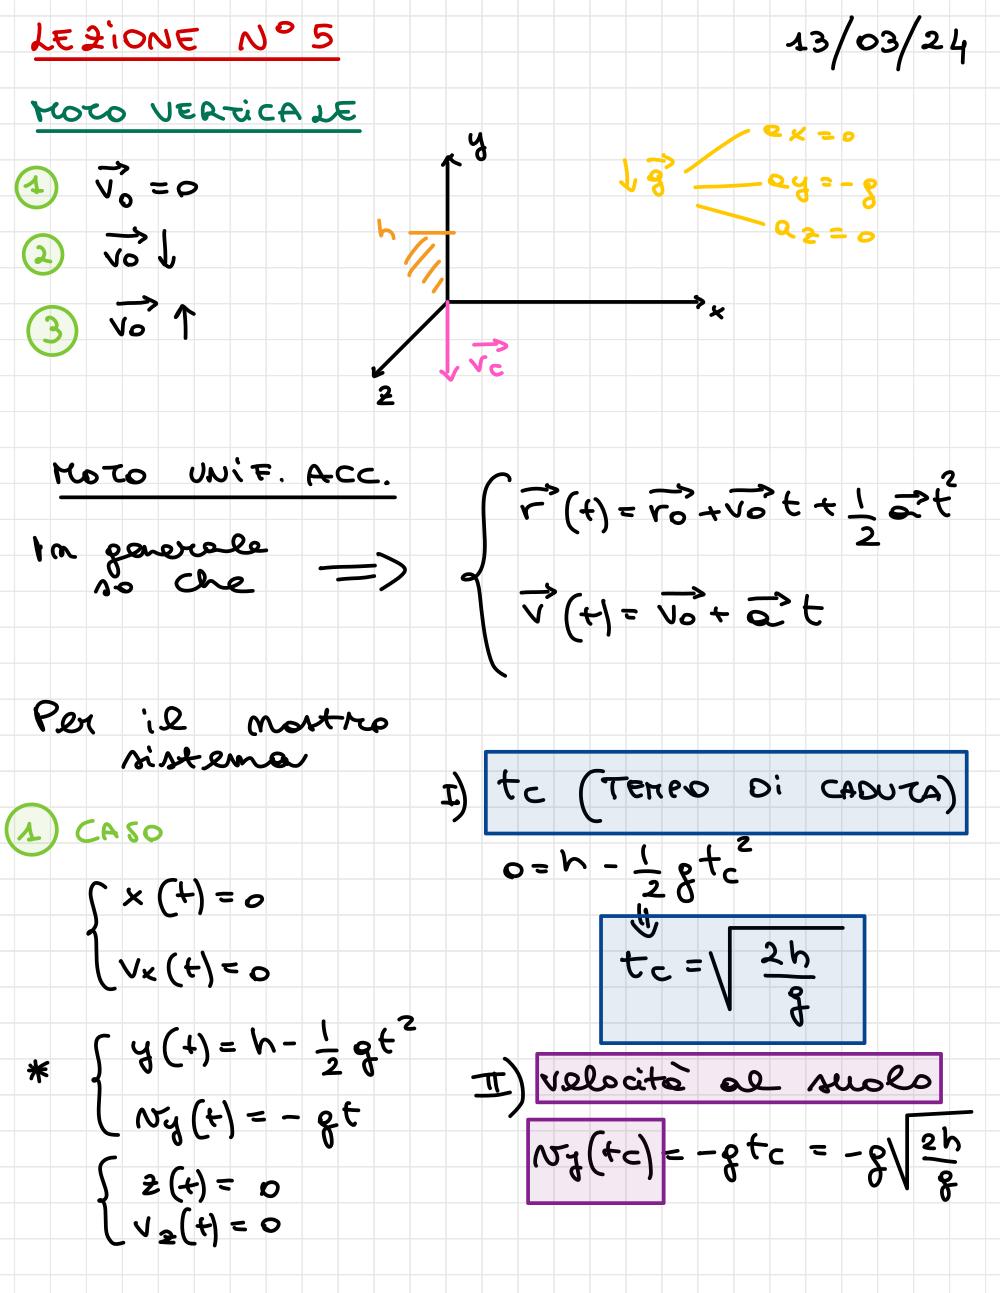 LEZIONE N° 5
13/03/24
MOTO VERTICALE
1 v⃗₀ = 0
2 v⃗₀ ↓
3 v⃗₀ ↑
y
h
x
z
v⃗c
↓ g⃗
ax = 0
ay = -g
az = 0
MOTO UNIF. ACC.
In generale
so che ⟹
r⃗(t) = r⃗₀ + v⃗₀ t + 1/2 a⃗ t²
v⃗(t) = v⃗₀ + a⃗ t
Per il nostro
sistema
1 CASO
x(t) = 0
vx(t) = 0
* y(t) = h - 1/2 gt²
vy(t) = - gt
z(t) = 0
vz(t) = 0
I) tc (TEMPO DI CADUTA)
0 = h - 1/2 g tc²
⇓
tc = √(2h/g)
II) velocità al suolo
vy(tc) = -g tc = -g √(2h/g)